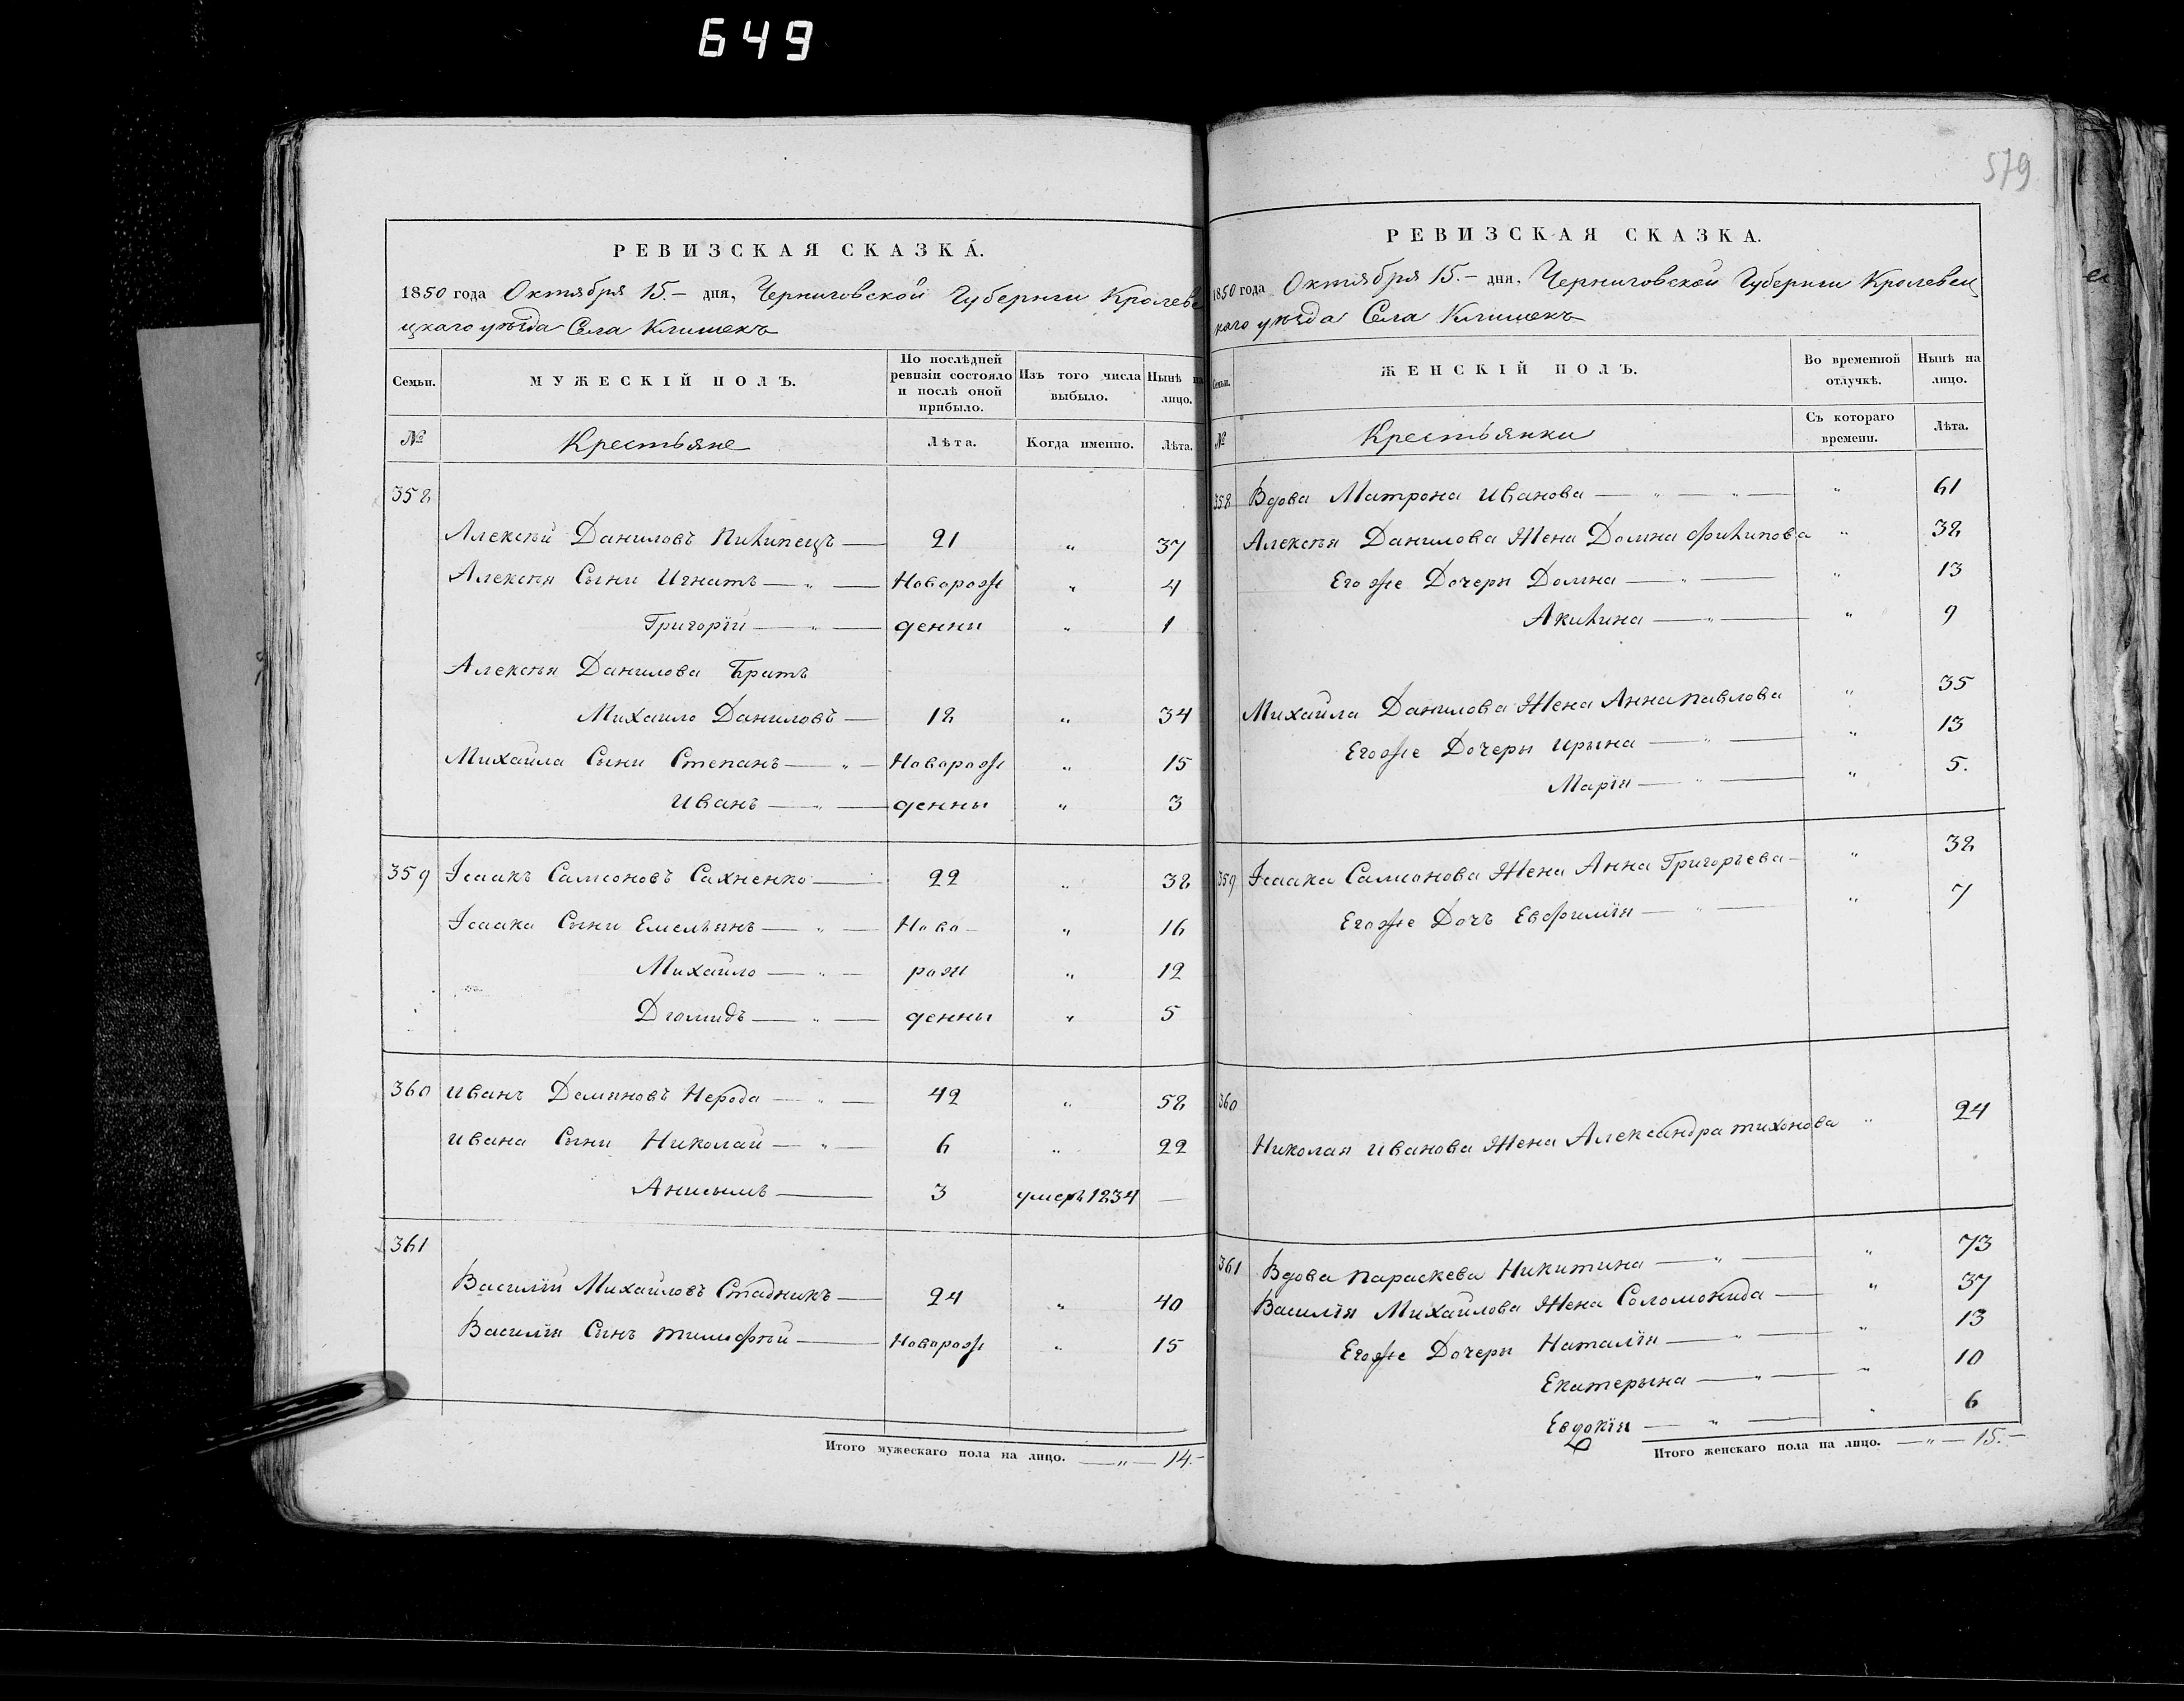 649
РЕВИЗСКАЯ СКАЗКА.
1850 года Октября 15.- дня, Черниговской Губернии Кролеве
цкаго уѣзда Села Клишекъ
Семьи.
МУЖЕСКІЙ ПОЛЪ.
По послѣдней ревизіи состояло и послѣ оной прибыло.
Изъ того числа выбыло.
Нынѣ на лицо.
№
Крестьяне
Лѣта.
Когда именно.
Лѣта.
358
Алексѣй Даниловъ Пилипецъ — 21 " 37
Алексѣя Сыни Игнатъ — " — Новорож " 4
Григорій — " — денни " 1
Алексѣя Данилова Братъ
Михайло Даниловъ — 18 " 34
Михайла Сыни Степанъ — " — Новорож " 15
Иванъ — " — денны " 3
359 Ісаакъ Самсоновъ Сахненко — 22 " 38
Ісаака Сыни Емельянъ — " — Ново- " 16
Михайло — " — рож " 12
Діомидъ — " — денны " 5
360 Иванъ Демяновъ Нерода — " — 42 " 58
Ивана Сыни Николай — " — 6 " 22
Анисымъ — 3 умеръ 1834 —
361
Василій Михайловъ Стадникъ — 24 " 40
Василія Сынъ Тимофѣй — Новорож " 15
Итого мужескаго пола на лицо. — " — 14.-
579
РЕВИЗСКАЯ СКАЗКА.
1850 года Октября 15.- дня, Черниговской Губернии Кролевец
каго уѣзда Села Клишекъ
Семьи.
ЖЕНСКІЙ ПОЛЪ.
Во временной отлучкѣ.
Нынѣ на лицо.
№
Крестьянки
Съ котораго времени.
Лѣта.
358 Вдова Матрона Иванова — " — " — " 61
Алексѣя Данилова Жена Домна Филипова " 38
Его же Дочери Домна — " — " 13
Акилина — " — " 9
Михайла Данилова Жена Анна Павлова " 35
Его же Дочери Ирына — " — " 13
Марія — " — " 5.
359 Ісаака Самсонова Жена Анна Григорьева — " 38
Его же Дочь Евфимія — " — " 7
360
Николая Иванова Жена Александра Тихонова " 24
361 Вдова Параскева Никитина — " — " 73
Василія Михайлова Жена Соломонида — " 37
Его же Дочери Наталія — " — " 13
Екатерына — " — " 10
Евдокія — " — " 6
Итого женскаго пола на лицо. — " — 15.-